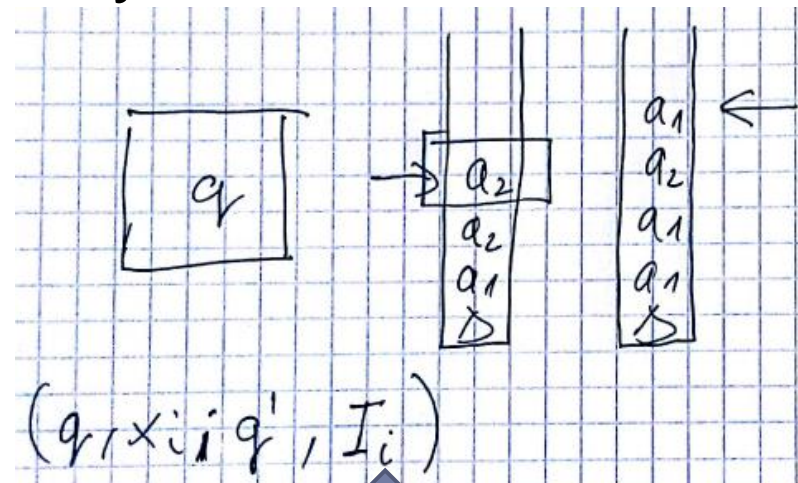 q
a₂
a₂
a₁
▷
a₁
a₂
a₁
a₁
▷
(q, xᵢ; q', Iᵢ)